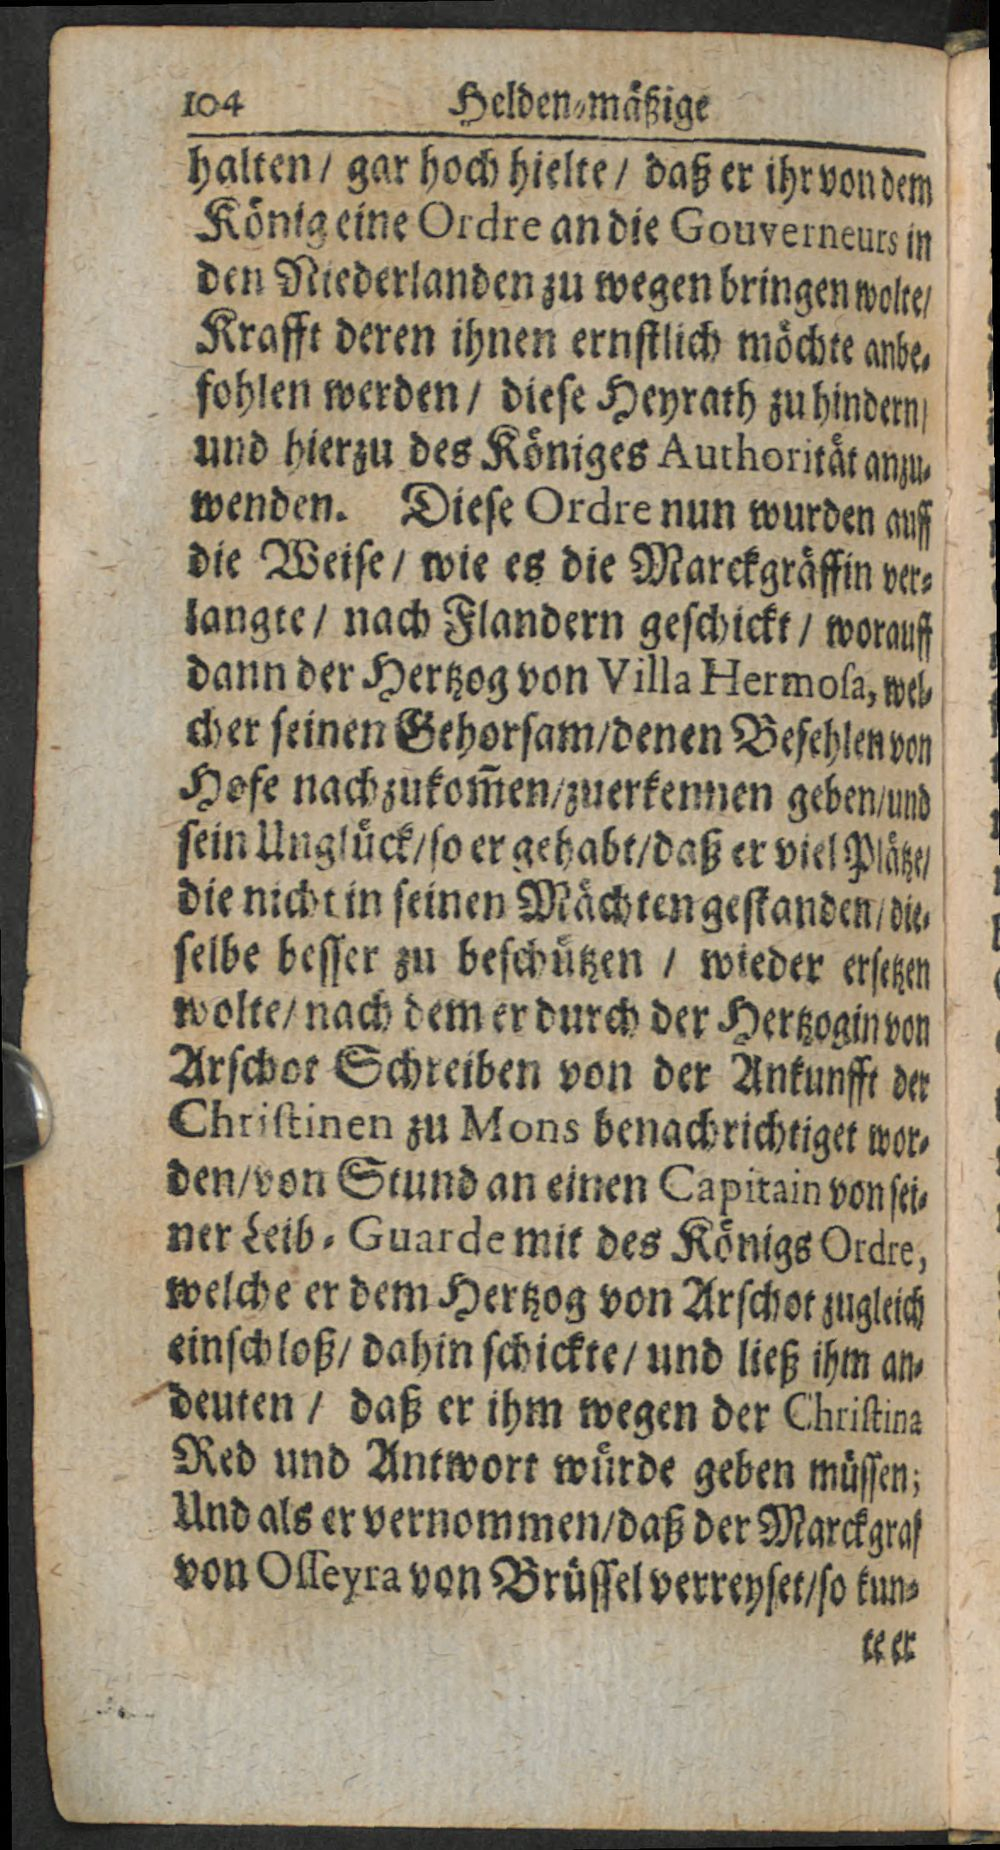 104 Helden-mäßige
halten/ gar hoch hielte/ daß er ihr von dem
König eine Ordre an die Gouverneurs in
den Niederlanden zu wegen bringen wolte/
Krafft deren ihnen ernstlich möchte anbe-
fohlen werden/ diese Heyrath zu hindern/
und hierzu des Königes Authorität anzu-
wenden. Diese Ordre nun wurden auff
die Weise/ wie es die Marckgräffin ver-
langte/ nach Flandern geschickt/ worauff
dann der Hertzog von Villa Hermosa, wel-
cher seinen Gehorsam/denen Befehlen von
Hofe nachzukom̃en/zuerkennen geben/und
sein Unglück/so er gehabt/daß er viel Plätze/
die nicht in seinen Mächten gestanden/die-
selbe besser zu beschützen / wieder ersetzen
wolte/nach dem er durch der Hertzogin von
Arschot Schreiben von der Ankunfft der
Christinen zu Mons benachrichtiget wor-
den/von Stund an einen Capitain von sei-
ner Leib-Guarde mit des Königs Ordre,
welche er dem Hertzog von Arschot zugleich
einschloß/ dahin schickte/ und ließ ihm an-
deuten / daß er ihm wegen der Christina
Red und Antwort würde geben müssen;
Und als er vernommen/daß der Marckgraf
von Osseyra von Brüssel verreyset/so kun-
te er